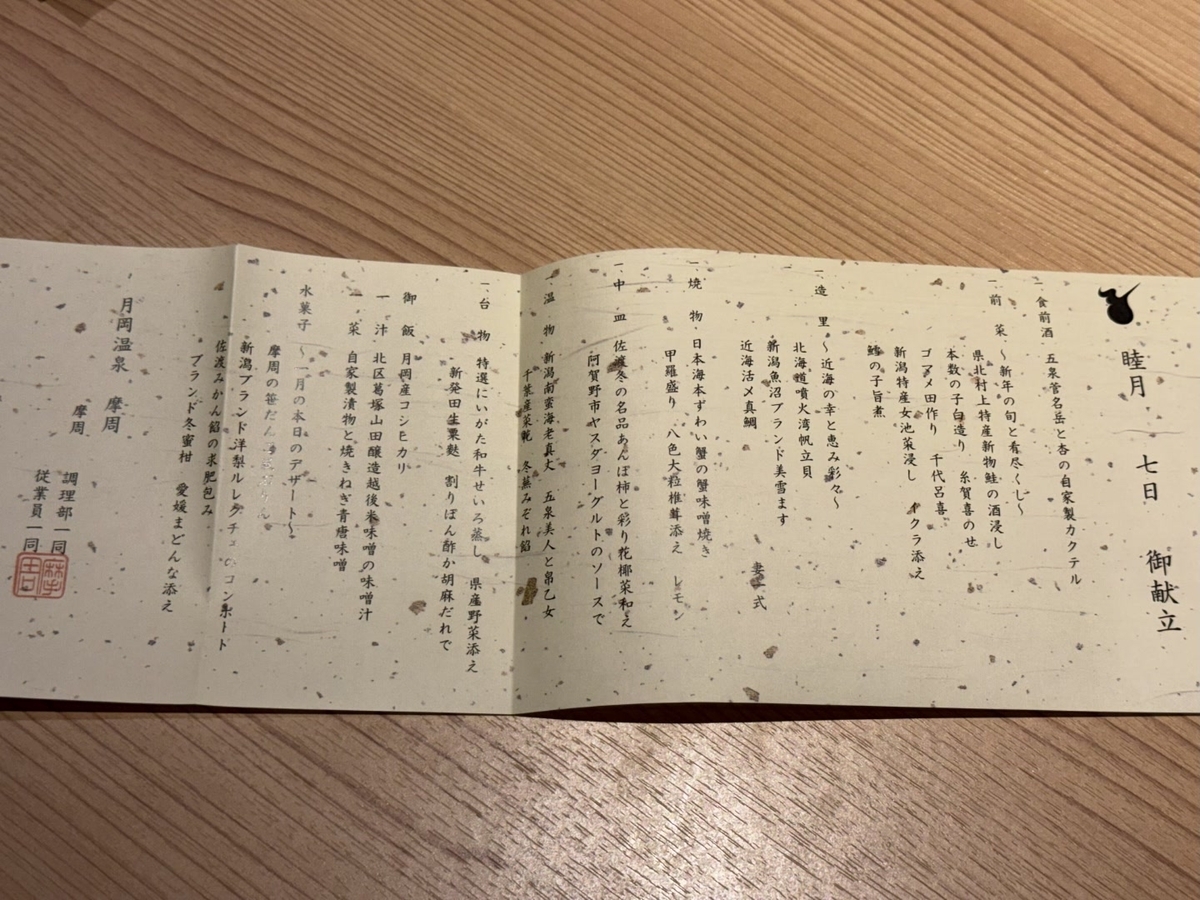 睦月 七日 御献立
一 食前酒 五泉菅名岳と杏の自家製カクテル
一 前菜 〜新年の旬と肴尽くし〜
県北村上特産新物鮭の酒浸し
本数の子白造り 糸賀喜のせ
ゴマメ田作り 千代呂喜
新潟特産女池菜浸し イクラ添え
鱈の子旨煮
一 造里 〜近海の幸と恵み彩々〜
北海道噴火湾帆立貝
新潟魚沼ブランド美雪ます
近海活〆真鯛 妻一式
一 焼物 日本海本ずわい蟹の蟹味噌焼き
甲羅盛り 八色大粒椎茸添え レモン
一 中皿 佐渡冬の名品あんぽ柿と彩り花椰菜和え
阿賀野市ヤスダヨーグルトのソースで
一 温物 新潟南蛮海老真丈 五泉美人と帛乙女
千葉産菜範 冬蕪みぞれ餡
一 台物 特選にいがた和牛せいろ蒸し 県産野菜添え
新発田生粟麩 割りぽん酢か胡麻だれで
御飯 月岡産コシヒカリ
一汁 北区葛塚山田醸造越後米味噌の味噌汁
一菜 自家製漬物と焼きねぎ青唐味噌
水菓子 〜一月の本日のデザート〜
摩周の笹だんご
新潟ブランド洋梨ルレクチェのコンポート
佐渡みかん餡の求肥包み
ブランド冬蜜柑 愛媛まどんな添え
月岡温泉 摩周
摩周 調理部一同
従業員一同